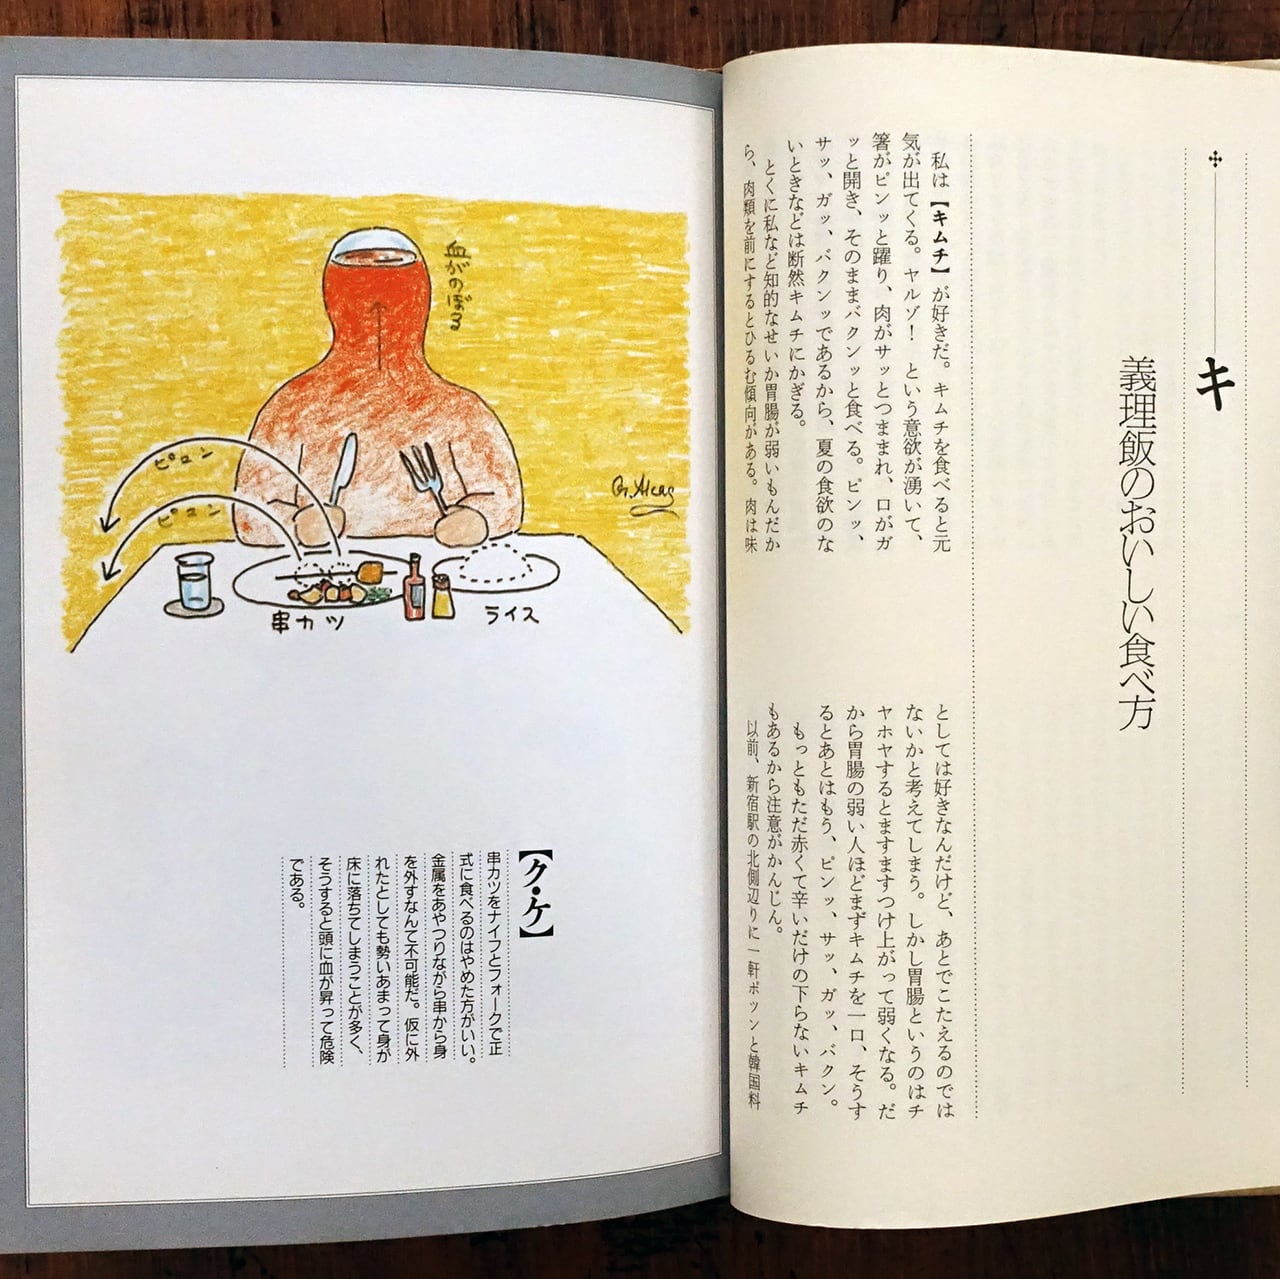 キ
義理飯のおいしい食べ方
私は【キムチ】が好きだ。キムチを食べると元
気が出てくる。ヤルゾ!という意欲が湧いて、
箸がピンッと躍り、肉がサッとつままれ、口がガ
ッと開き、そのままバクンッと食べる。ピンッ、
サッ、ガッ、バクンッであるから、夏の食欲のな
いときなどは断然キムチにかぎる。
とくに私など知的なせいか胃腸が弱いもんだか
ら、肉類を前にするとひるむ傾向がある。肉は味
としては好きなんだけど、あとでこたえるのでは
ないかと考えてしまう。しかし胃腸というのはチ
ヤホヤするとますますつけ上がって弱くなる。だ
から胃腸の弱い人ほどまずキムチを一口、そうす
るとあとはもう、ピンッ、サッ、ガッ、バクン。
もっともただ赤くて辛いだけの下らないキムチ
もあるから注意がかんじん。
以前、新宿駅の北側辺りに一軒ポツンと韓国料
血がのぼる
ピュン
ピュン
串カツ
ライス
【ク・ケ】
串カツをナイフとフォークで正
式に食べるのはやめた方がいい。
金属をあやつりながら串から身
を外すなんて不可能だ。仮に外
れたとしても勢いあまって身が
床に落ちてしまうことが多く、
そうすると頭に血が昇って危険
である。